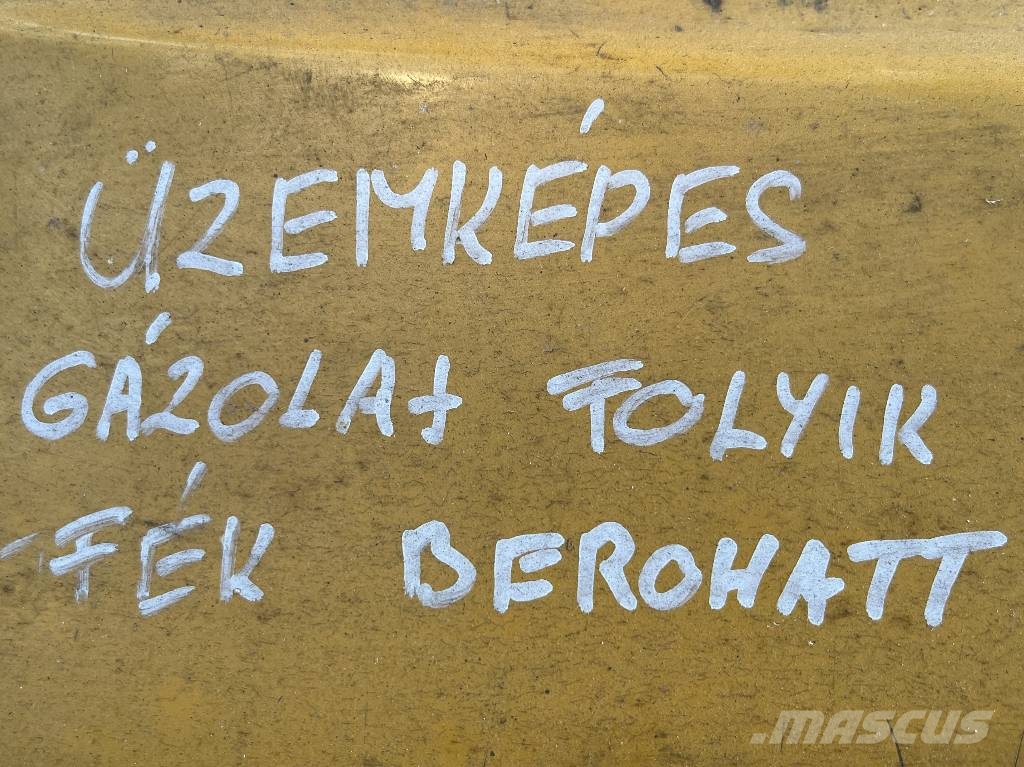 ÜZEMKÉPES
GÁZOLAJ FOLYIK
FÉK BEROHATT
.MASCUS